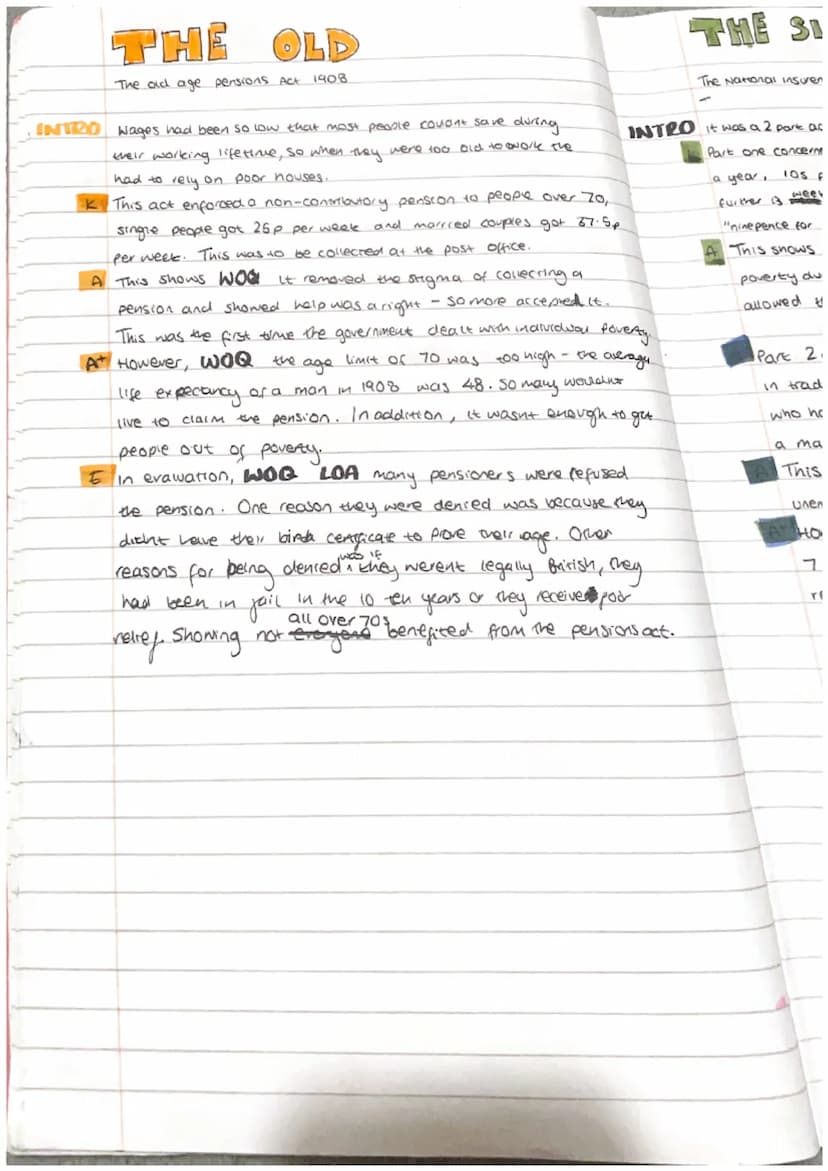 THE OLD
The old age pensions Act 1908
INTRO Wages had been so low that most people couldnt save during
their working lifetime, so when they were too old to work the
had to rely on poor houses.
K This act enforced a non-contributory pension to people over 70,
single people got 25p per week and married couples got 37.5p
per week. This was to be collected at the post office.
A This shows WOQ it removed the stigma of collecting a
pension and showed help was a right - so more accepted it.
This was the first time the government dealt with individual poverty.
A+ However, WOQ the age limit of 70 was too high - the average
life expectancy of a man in 1908 was 48. So many wouldnt
live to claim the pension. In addition, it wasnt enough to get
people out of poverty.
E In evaluation, WOQ LOA many pensioners were refused
the pension. One reason they were denied was because they
didnt have their birth certificate to prove their age. Other
reasons for being denied was if they werent legally British, they
had been in jail in the 10 ten years or they receive poor
relief. Showing not everyone all over 70s benefited from the pensions act.
THE SI
The National Insuren
INTRO it was a 2 part ac
K Part one concern
a year, 10s f
further 13 week
"ninepence for
A This shows
poverty du
allowed t
Part 2
in trad
who ha
a ma
A This
unem
A+ Ho
7